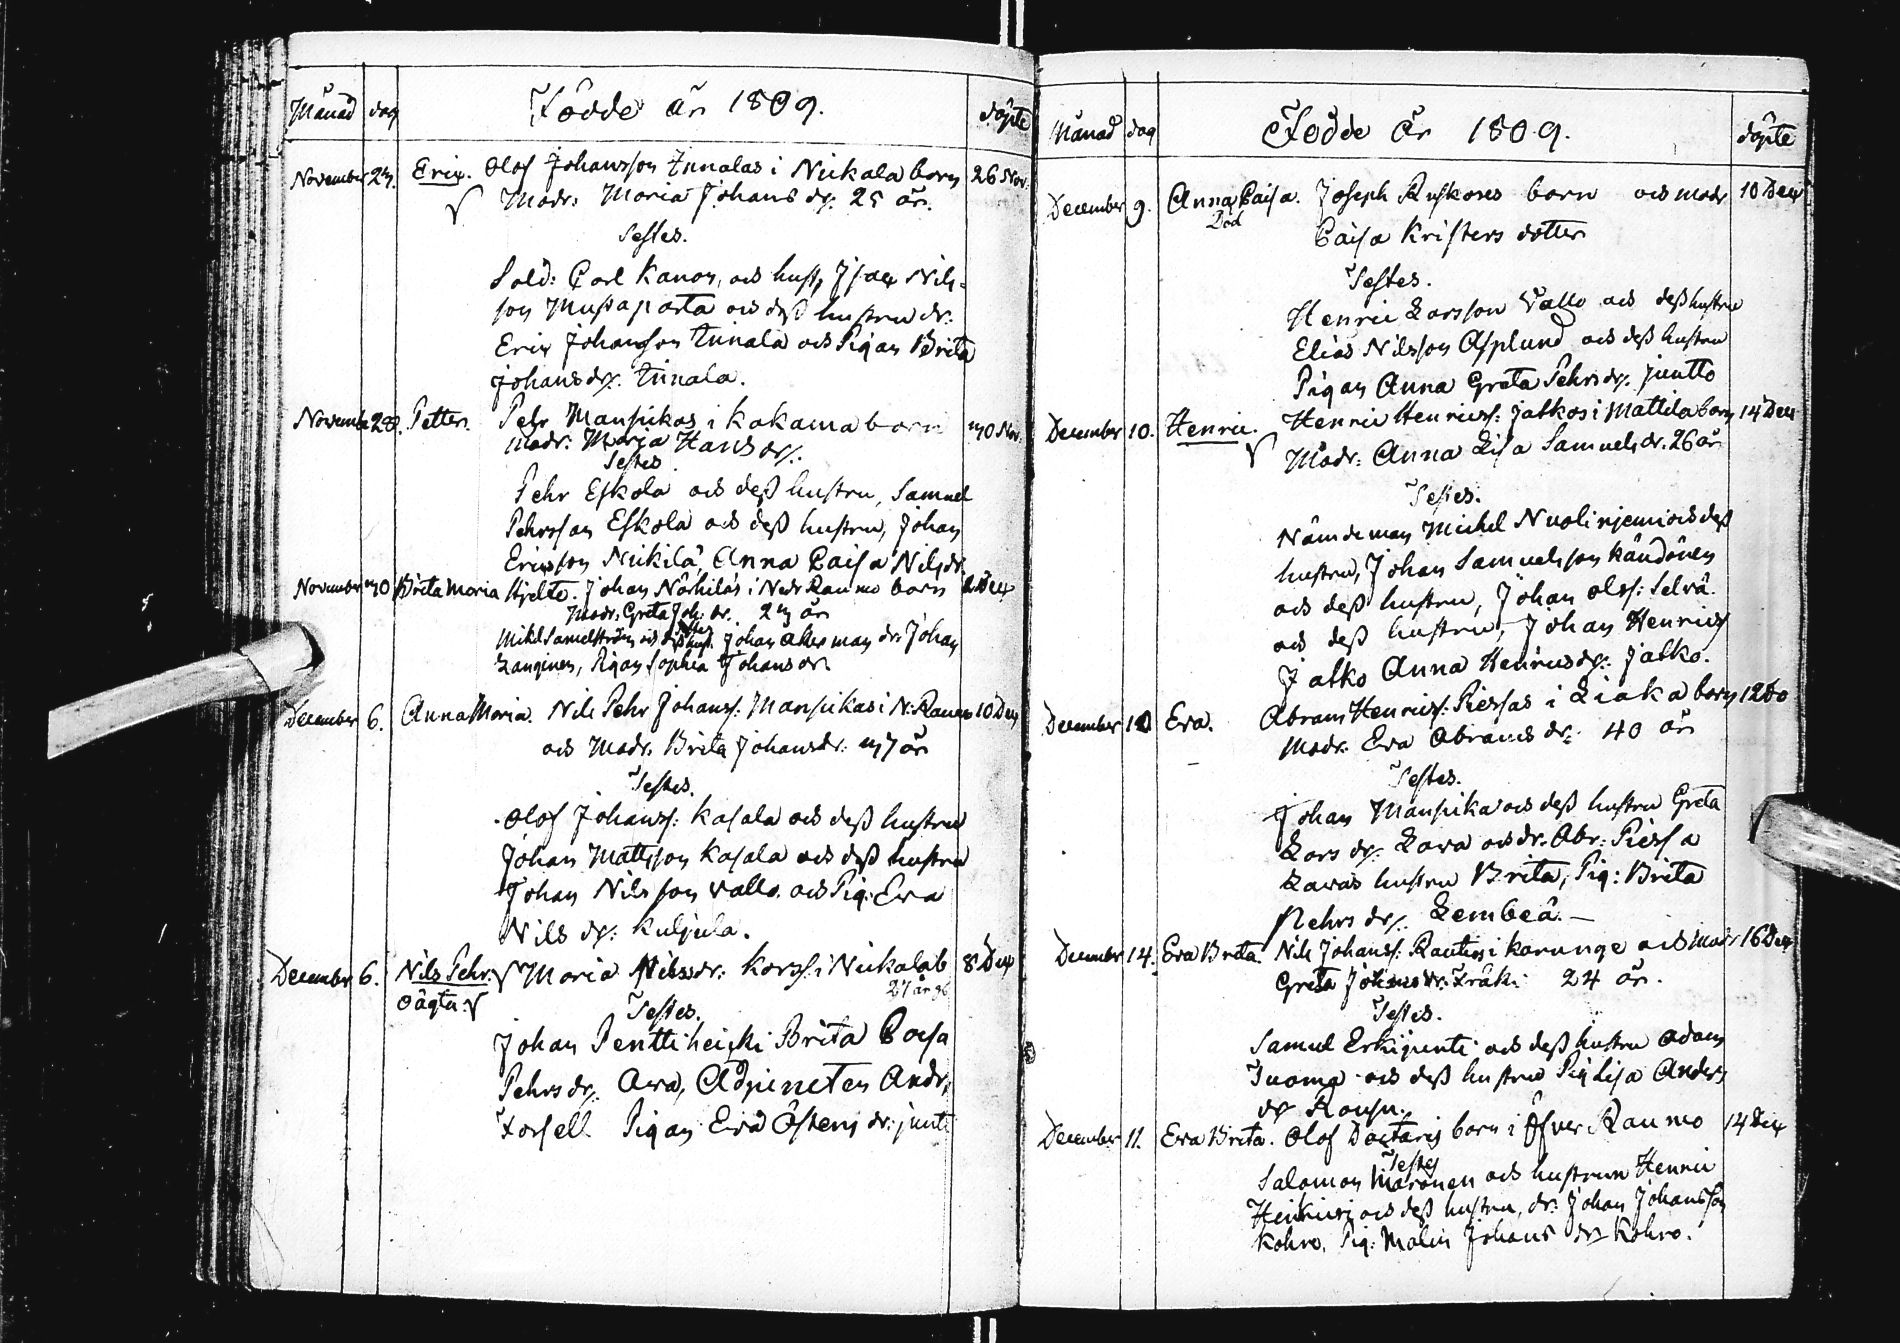 Månad dag Födde År 1809. döpte
November 23. Erix. Olof Johansson Tunalas i Neikala barn 26 Nov.
Modr. Maria Johans dr. 25 år.
Testes.
Sold: Carl Kanon, och hust, Isac Nils-
son Mustaparta och dess hustru dr:
Erix Johansson Tunala och Pigan Brita
Johans dr. Tunala.
November 28. Petter. Pehr Mansikas i Kakama barn 30 Nov.
Modr: Maria Hans dr.
Testes
Pehr Eskola och dess hustru, Samuel
Pehrsson Eskola och dess hustru, Johan
Ericsson Neikilä, Anna Caisa Nils dr.
November 30 Brita Maria Hjelte. Johan Närhiläs i Nedr Raumo barn 2 Dec
Modr. Greta Joh. dr. 23 år
Testes
Mikel Samelström och dess hust. Johan Åkerman dr. Johan
Langinen, Pigan Sophia Johans dr.
December 6. Anna Maria. Nils Pehr Johanss: Mansikas i N: Raumo 10 Dec
och Modr. Brita Johans dr: 37 år
Testes.
Olof Johanss: Kasala och dess hustru
Johan Mattsson Kasala och dess hustru
Johan Nilsson Vallo. och Pig: Eva
Nils dr: Kuljula.
December 6. Nils Pehr. Maria Nils dr: Korss: i Neikala b 8 Dec
oägta. 27 år gl
Testes.
Johan Penttiheiski Brita Caisa
Pehrs dr. Ava, Adjuncten Andr.
Forsell Pigan Eva Östens dr: junti
Månad dag Födde År 1809. döpte
December 9. Anna Caisa. Joseph Ruskones barn och modr 10 Dec
Död
Caisa Kristers dotter
Testes.
Henric Larsson Vallo och dess hustru
Elias Nilsson Asplund och dess hustru
Pigan Anna Greta Pehrs dr. juntto
December 10. Henric. Henric Henricss: Jatkos i Mattila barn 14 Dec
Modr: Anna Lisa Samuels dr. 26 år
Testes.
Nämdeman Mickel Nuoliniemi och dess
hustru, Johan Samuelsson Kändönen
och dess hustru, Johan Olss: Selvä.
och dess hustru, Johan Henricss
Jatko Anna Henrics dr: Jatko.
December 10 Eva. Abram Henricss: Piessas i Liaka barn 12 Do
Modr. Eva Abrams dr: 40 år
Testes.
Johan Mansika och dess hustru Greta
Lars dr: Lava och dr. Abr: Piessa
Lavas hustru Brita, Pig: Brita
Pehrs dr. Lembeä. –
December 14. Eva Brita. Nils Johanss: Rautios i Karunge och Modr 16 Dec
Greta Johans dr: Fräki 24 år.
Testes.
Samuel Erkijunti och dess hustru Adam
Tuoma och dess hustru Pig Lisa Anders
dr Rousu.
December 11. Eva Brita. Olof Dactaris barn i Öfver Raumo 14 Dec
Testes
Salomon Maronen och hustrun Henric
Heikuri och dess hustru, dr: Johan Johansson
Kohvo. Pig: Malin Johans dr Kohvo.